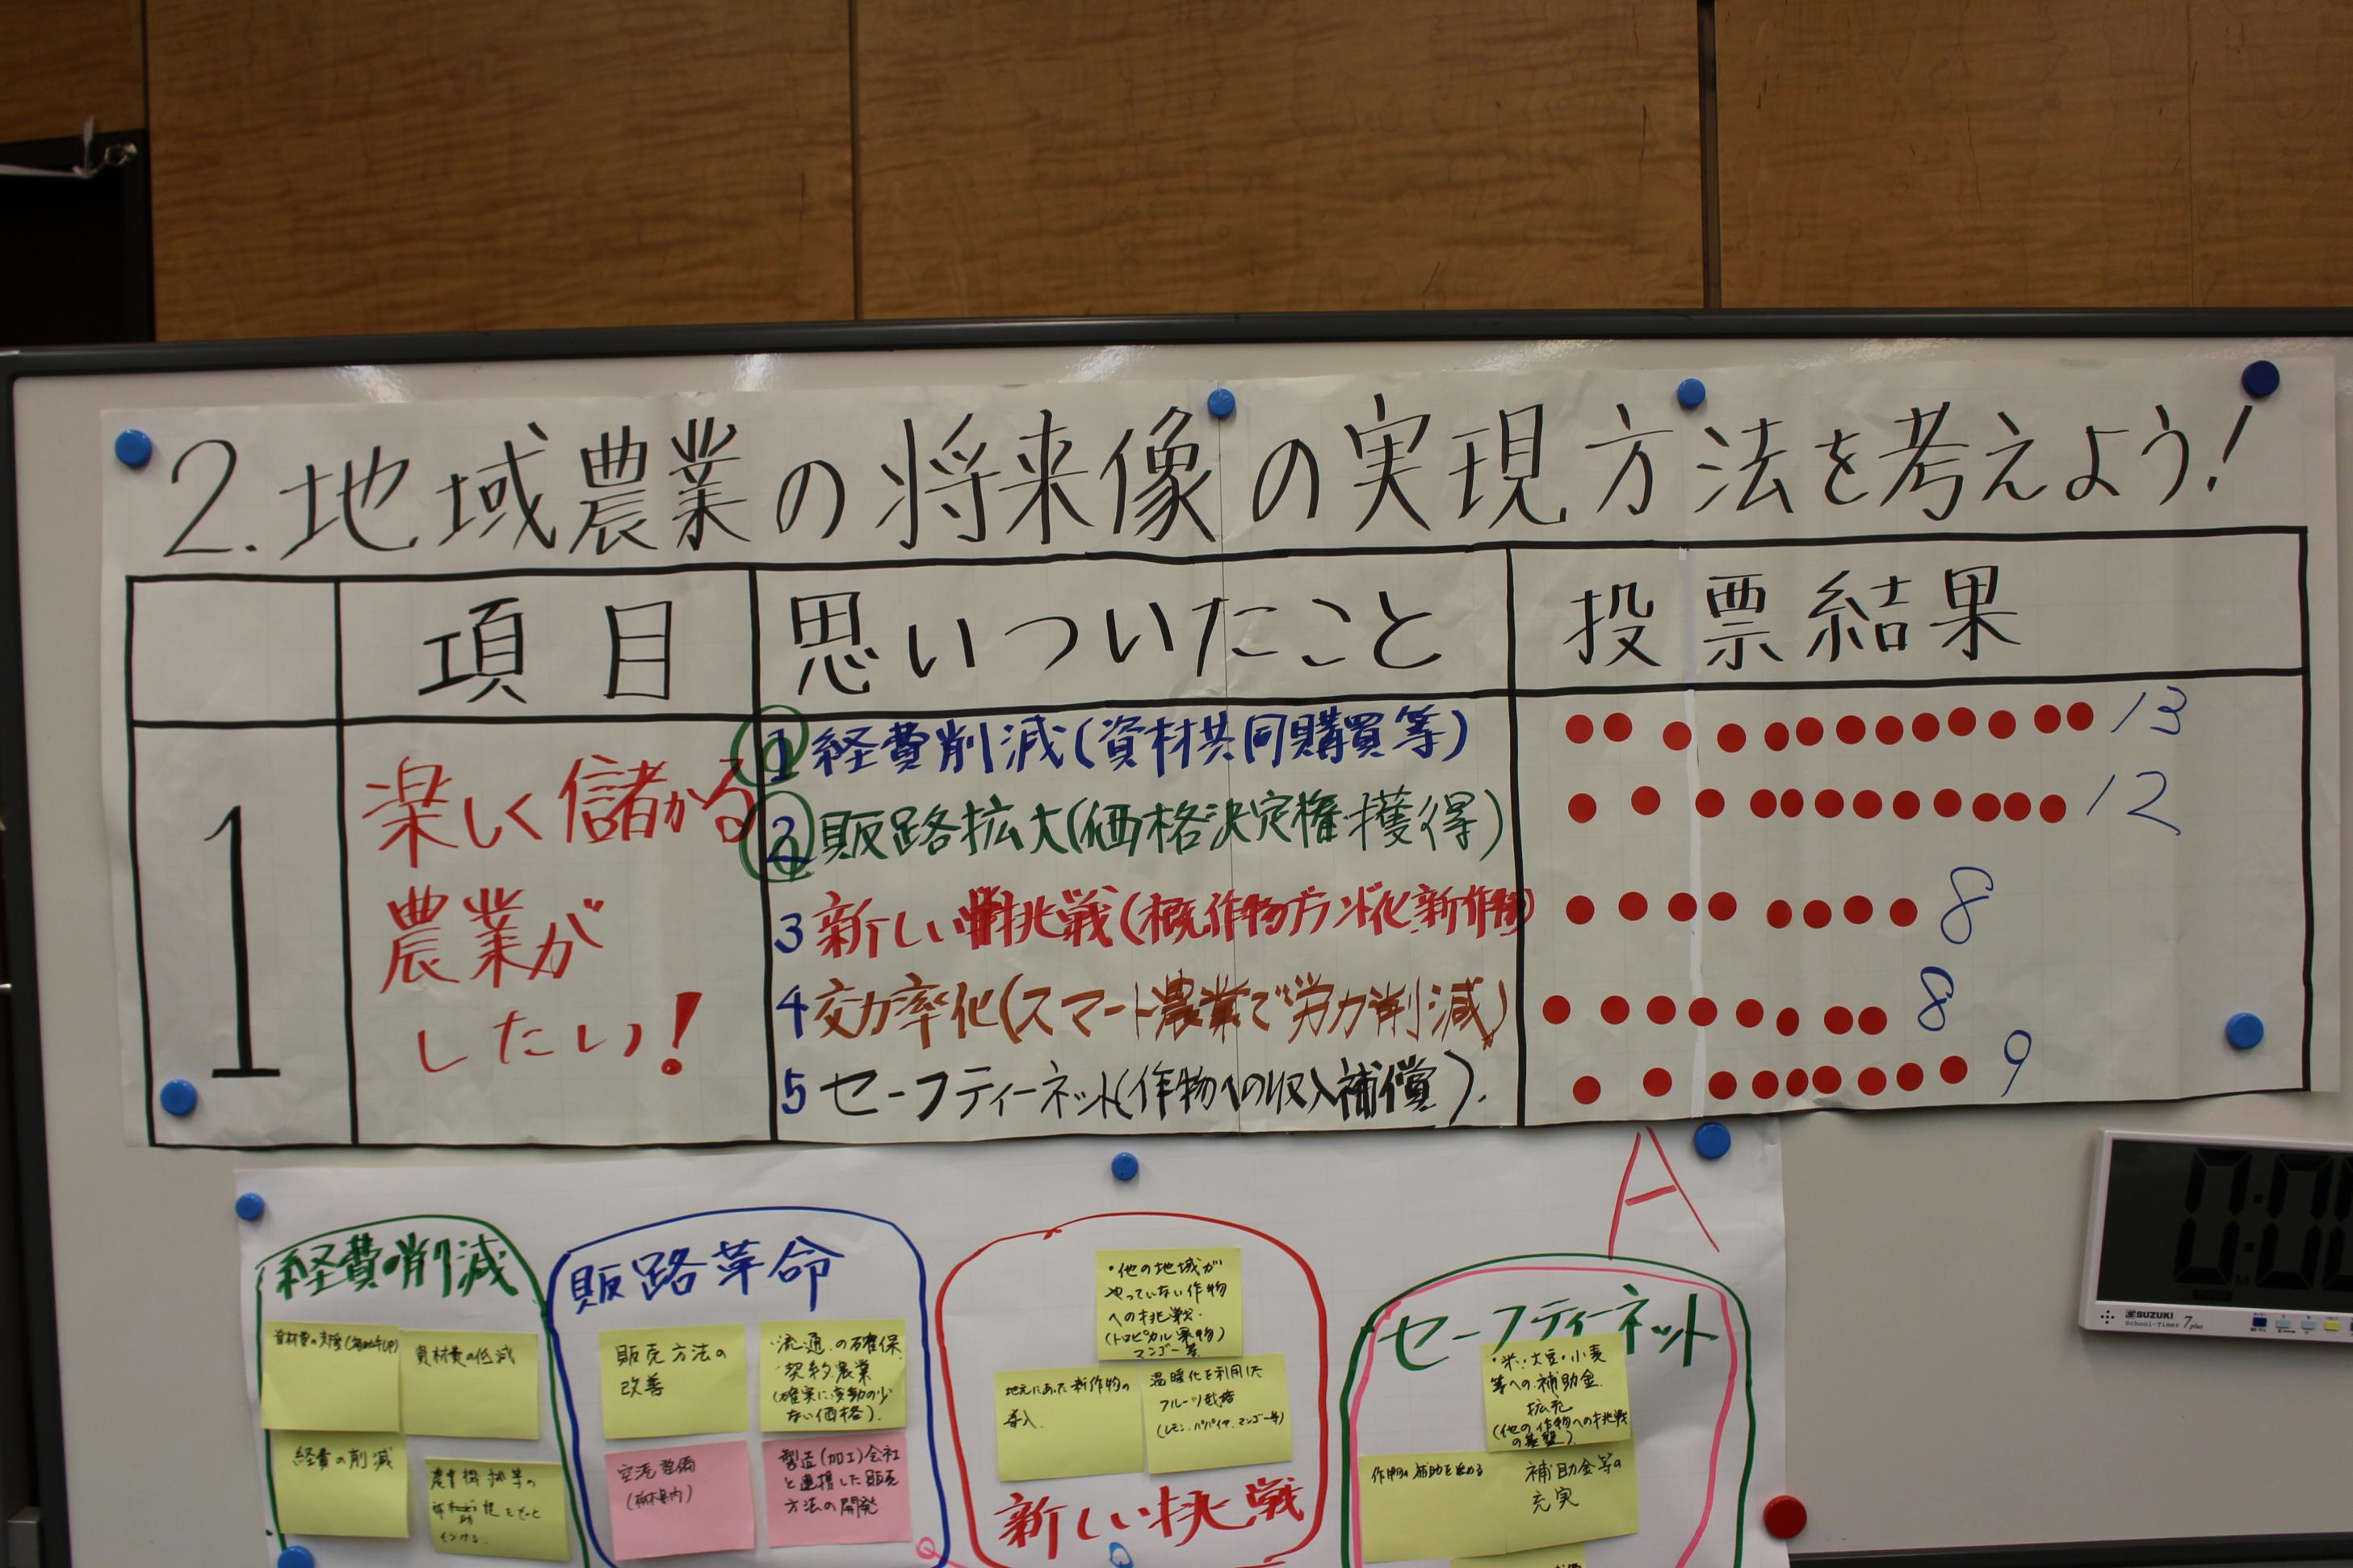 2.地域農業の将来像の実現方法を考えよう!
項目 思いついたこと 投票結果
1
楽しく儲かる
農業が
したい!
1 経費削減(資材共同購買等) 13
2 販路拡大(価格決定権獲得) 12
3 新しい挑戦(概作物ブランド化新作物) 8
4 効力率化(スマート農業で労力削減) 8
5 セーフティーネット(作物への収入補償). 9
A
経費の削減
資材費の低減
経費の削減
販路革命
販売方法の
改善
・流通の確保
契約農業
(確実に変動の少
ない価格).
(栃木県内)
製造(加工)会社
と連携した販売
方法の開発
・他の地域が
やっていない作物
への挑戦.
(トロピカル果物)
マンゴー等
地元にあった新作物の
導入.
温暖化を利用した
フルーツ栽培
(レモン、パパイヤ、マンゴー等)
新しい挑戦
セーフティーネット
・米・大豆・小麦
等への補助金.
拡充
(他の作物への挑戦
の基盤).
補助金等の
充実
SUZUKI
School-Timer 7plus
0:00